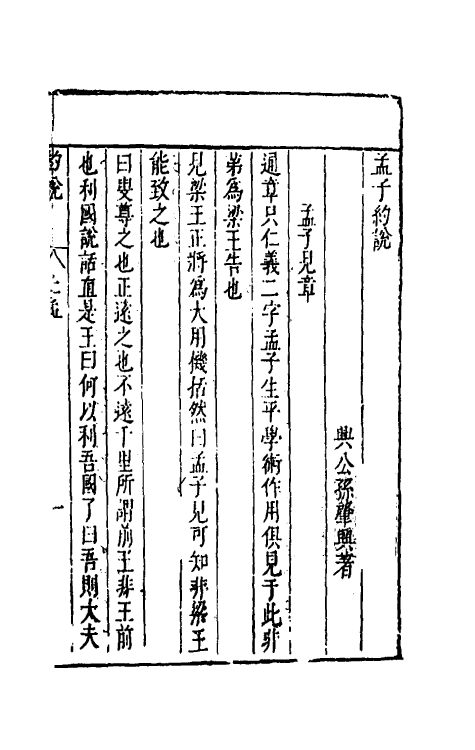 孟子約說
興公孫肇興著
孟子見章
通章只仁義二字孟子生平學術作用俱見于此非
第為梁王告也
見梁王正將為大用機括然曰孟子見可知非梁王
能致之也
曰叟尊之也正遠之也不遠千里所謂前王非王前
也利國說話直是王曰何以利吾國了曰吾則大夫
約說
上孟
一